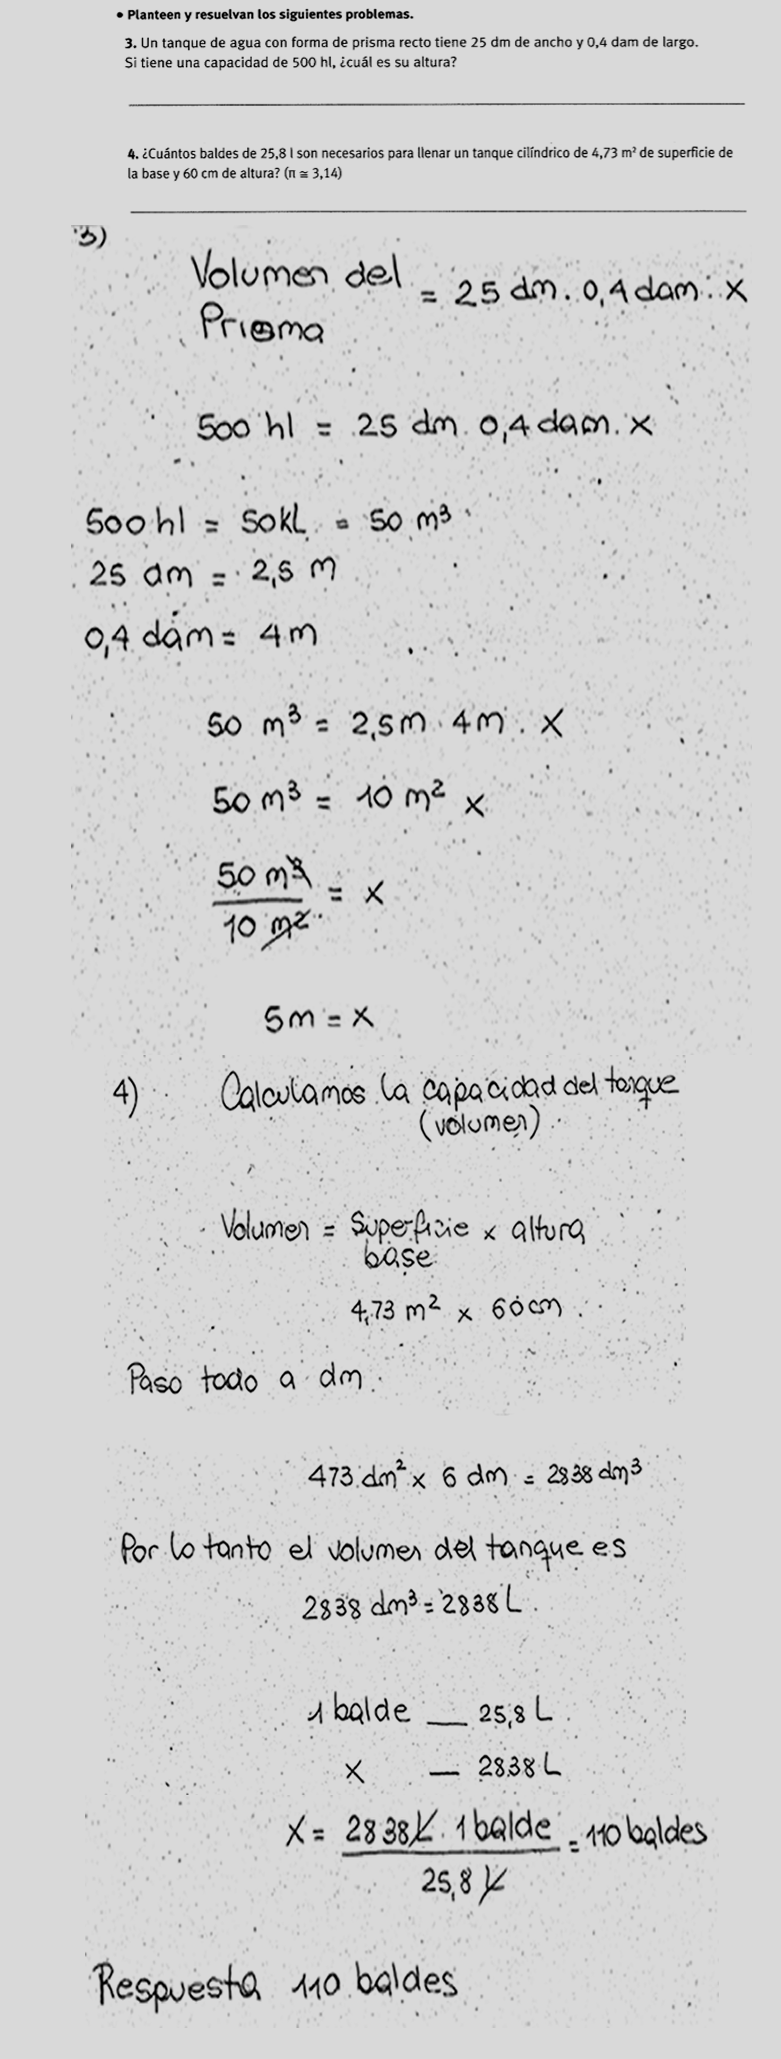 • Planteen y resuelvan los siguientes problemas.
3. Un tanque de agua con forma de prisma recto tiene 25 dm de ancho y 0,4 dam de largo.
Si tiene una capacidad de 500 hl, ¿cuál es su altura?
4. ¿Cuántos baldes de 25,8 l son necesarios para llenar un tanque cilíndrico de 4,73 m² de superficie de
la base y 60 cm de altura? (π ≅ 3,14)
3)
Volumen del Prisma = 25 dm . 0,4 dam . x
500 hl = 25 dm . 0,4 dam . x
500 hl = 50 kL = 50 m³
25 dm = 2,5 m
0,4 dam = 4 m
50 m³ = 2,5 m . 4 m . x
50 m³ = 10 m² x
50 m³ / 10 m² = x
5 m = x
4) Calculamos la capacidad del tanque
(volumen)
Volumen = Superficie base x altura
4,73 m² x 60 cm
Paso todo a dm.
473 dm² x 6 dm = 2838 dm³
Por lo tanto el volumen del tanque es
2838 dm³ = 2838 L
1 balde — 25,8 L
x — 2838 L
x = 2838 L . 1 balde / 25,8 L = 110 baldes
Respuesta 110 baldes